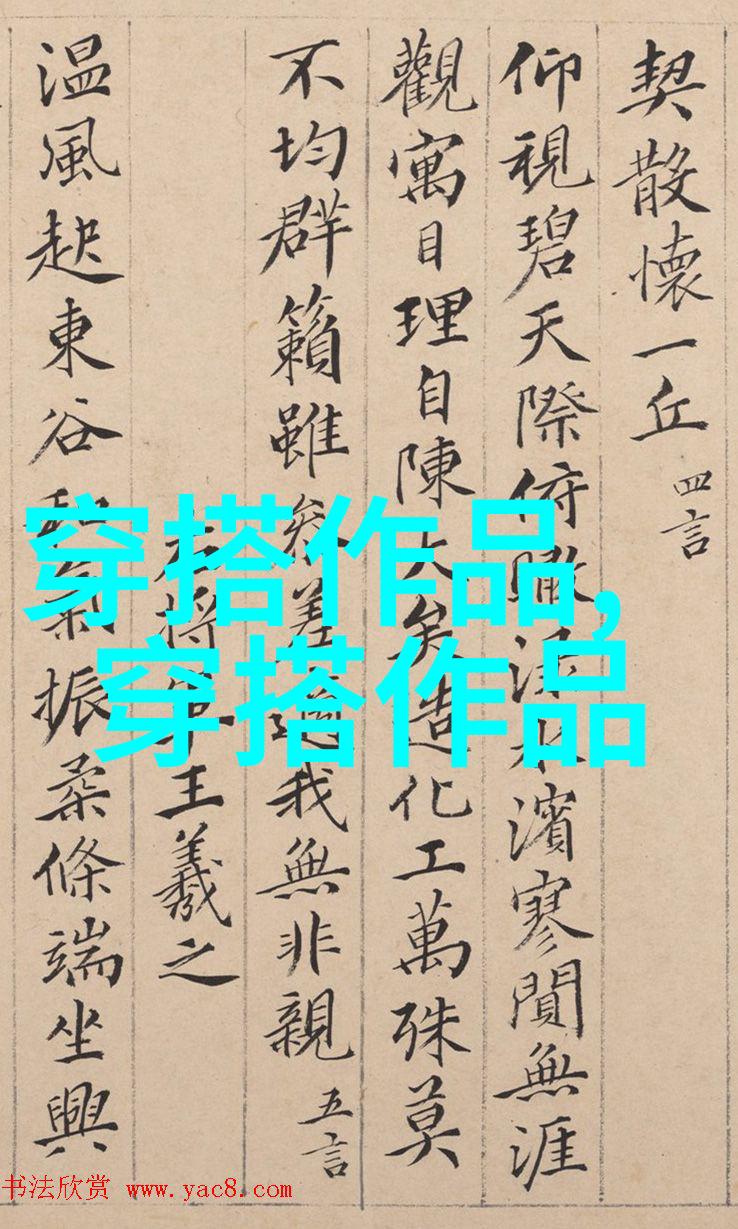 契散懷一丘 四言
仰視碧天際俯瞰淥水濱寥閴無涯
觀寓目理自陳大矣造化工萬殊莫
不均群籟雖參差適我無非親 五言
右將軍王羲之
温風起東谷和氣振柔條端坐興
穿搭作品,
穿搭作品
书法欣赏 www.yac8.com